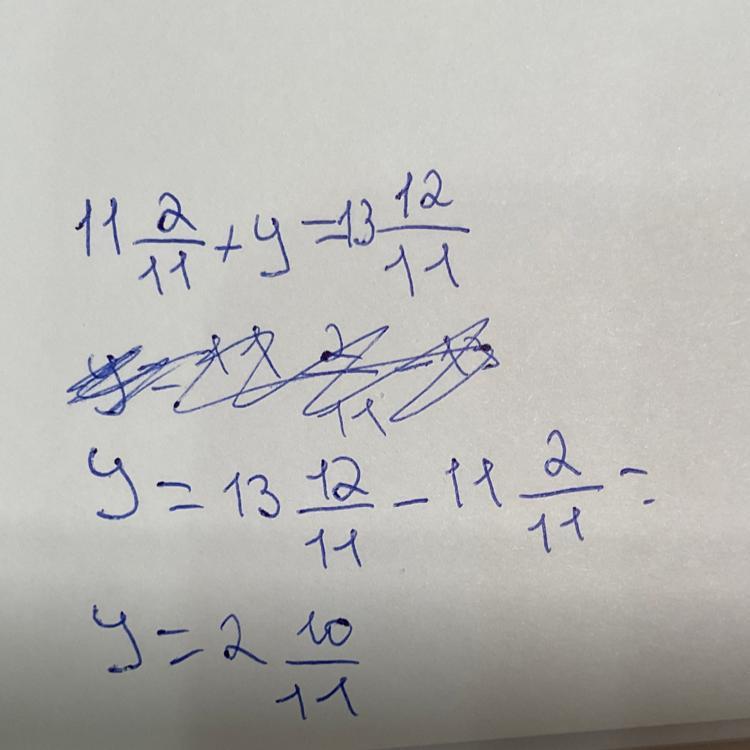 11 2/11 + y = 13 12/11
y = 13 12/11 - 11 2/11 =
y = 2 10/11